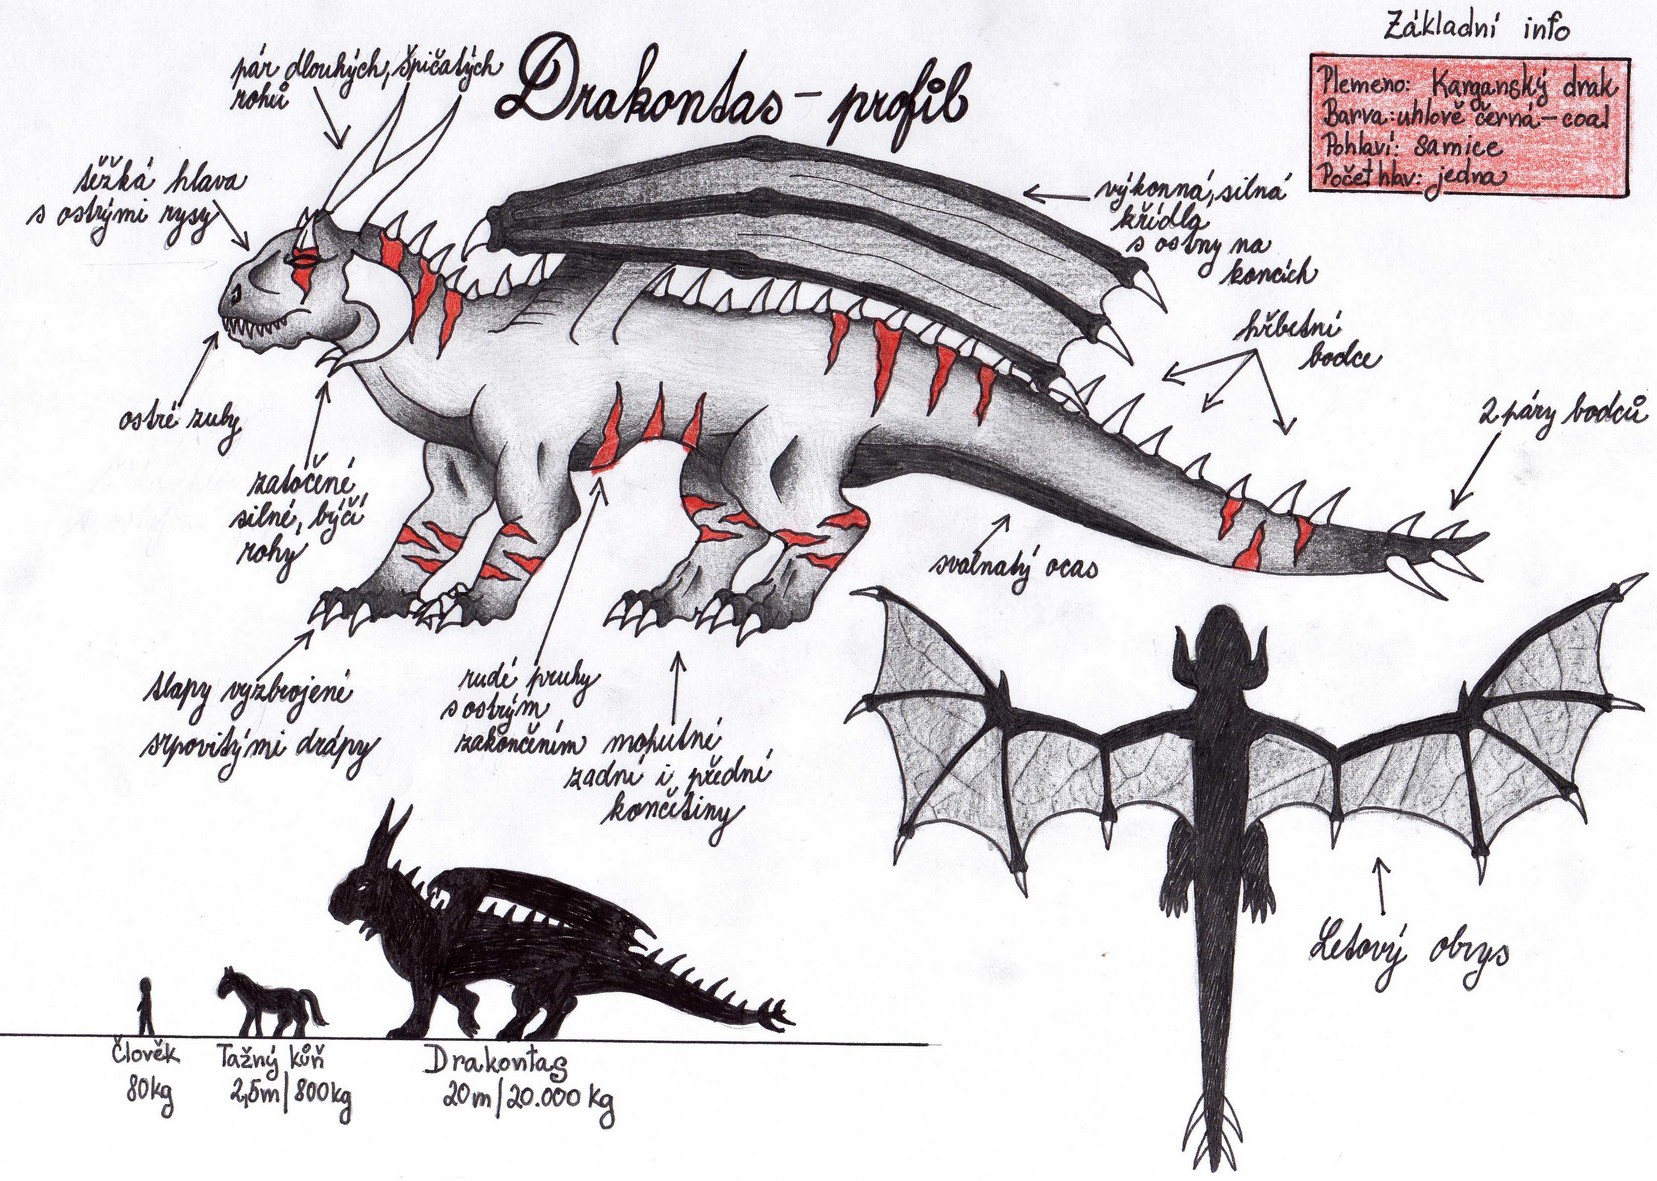 Základní info
Drakontas - profil
Plemeno: Karganský drak
Barva: uhlově černá - coal
Pohlaví: samice
Počet hlav: jedna
pár dlouhých, špičatých
rohů
těžká hlava
s ostrými rysy
výkonná, silná
křídla
s ostny na
koncích
hřbetní
bodce
2 páry bodců
ostré zuby
zatočené
silné, býčí
rohy
svalnatý ocas
tlapy vyzbrojené
srpovitými drápy
rudé pruhy
s ostrým
zakončením
mohutné
zadní i přední
končetiny
Letový obrys
Člověk
80kg
Tažný kůň
2,5m/800kg
Drakontas
20m/20.000 kg